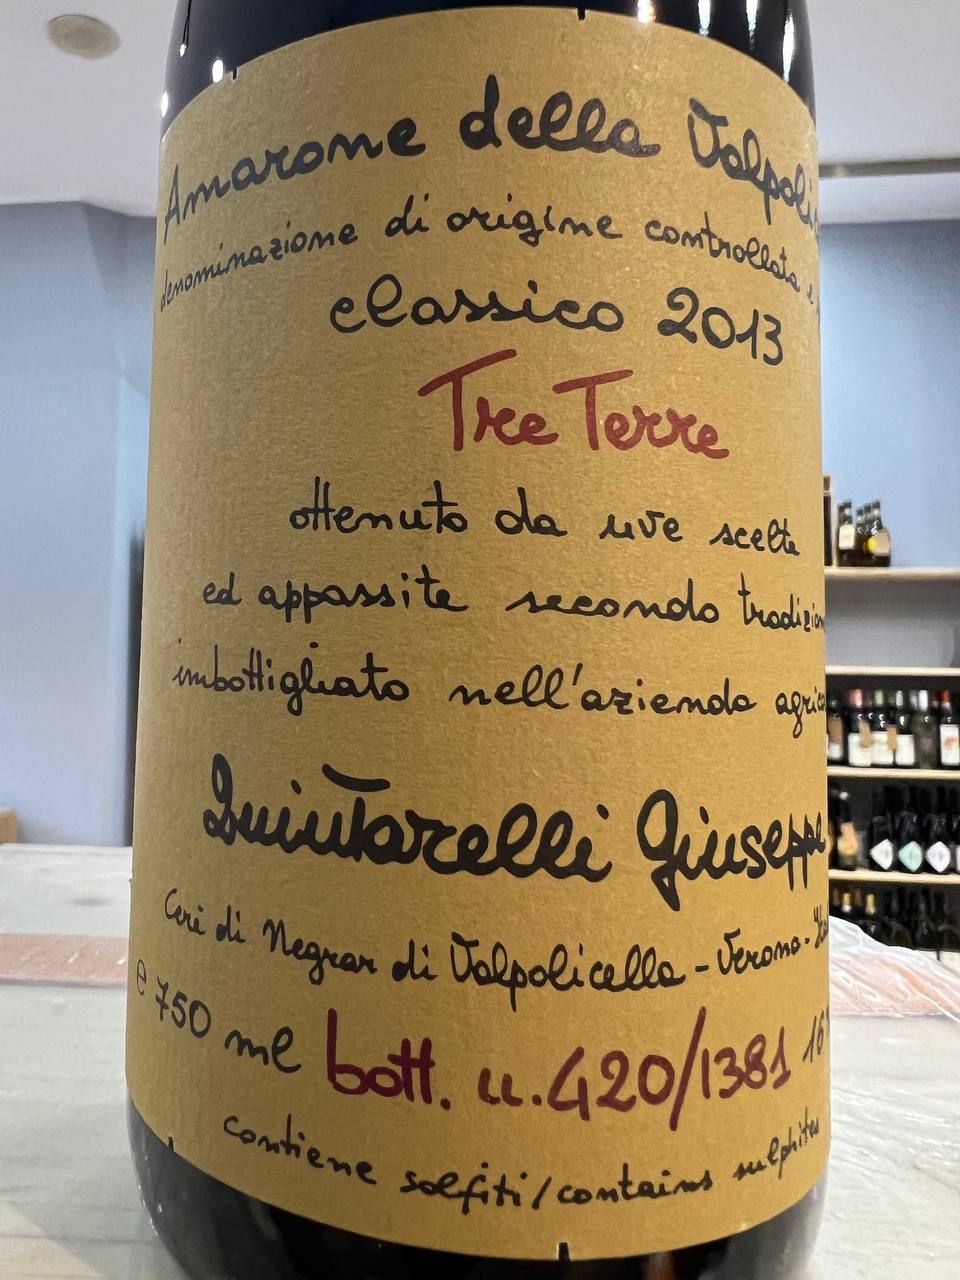 Amarone della Valpolic
denominazione di origine controllata e
classico 2013
Tre Terre
ottenuto da uve scelte
ed appassite secondo tradizion
imbottigliato nell'azienda agrico
Quintarelli Giuseppe
Cerè di Negrar di Valpolicella - Verona - Ita
e 750 ml bott. n. 420/1381 16%
contiene solfiti / contains sulphites